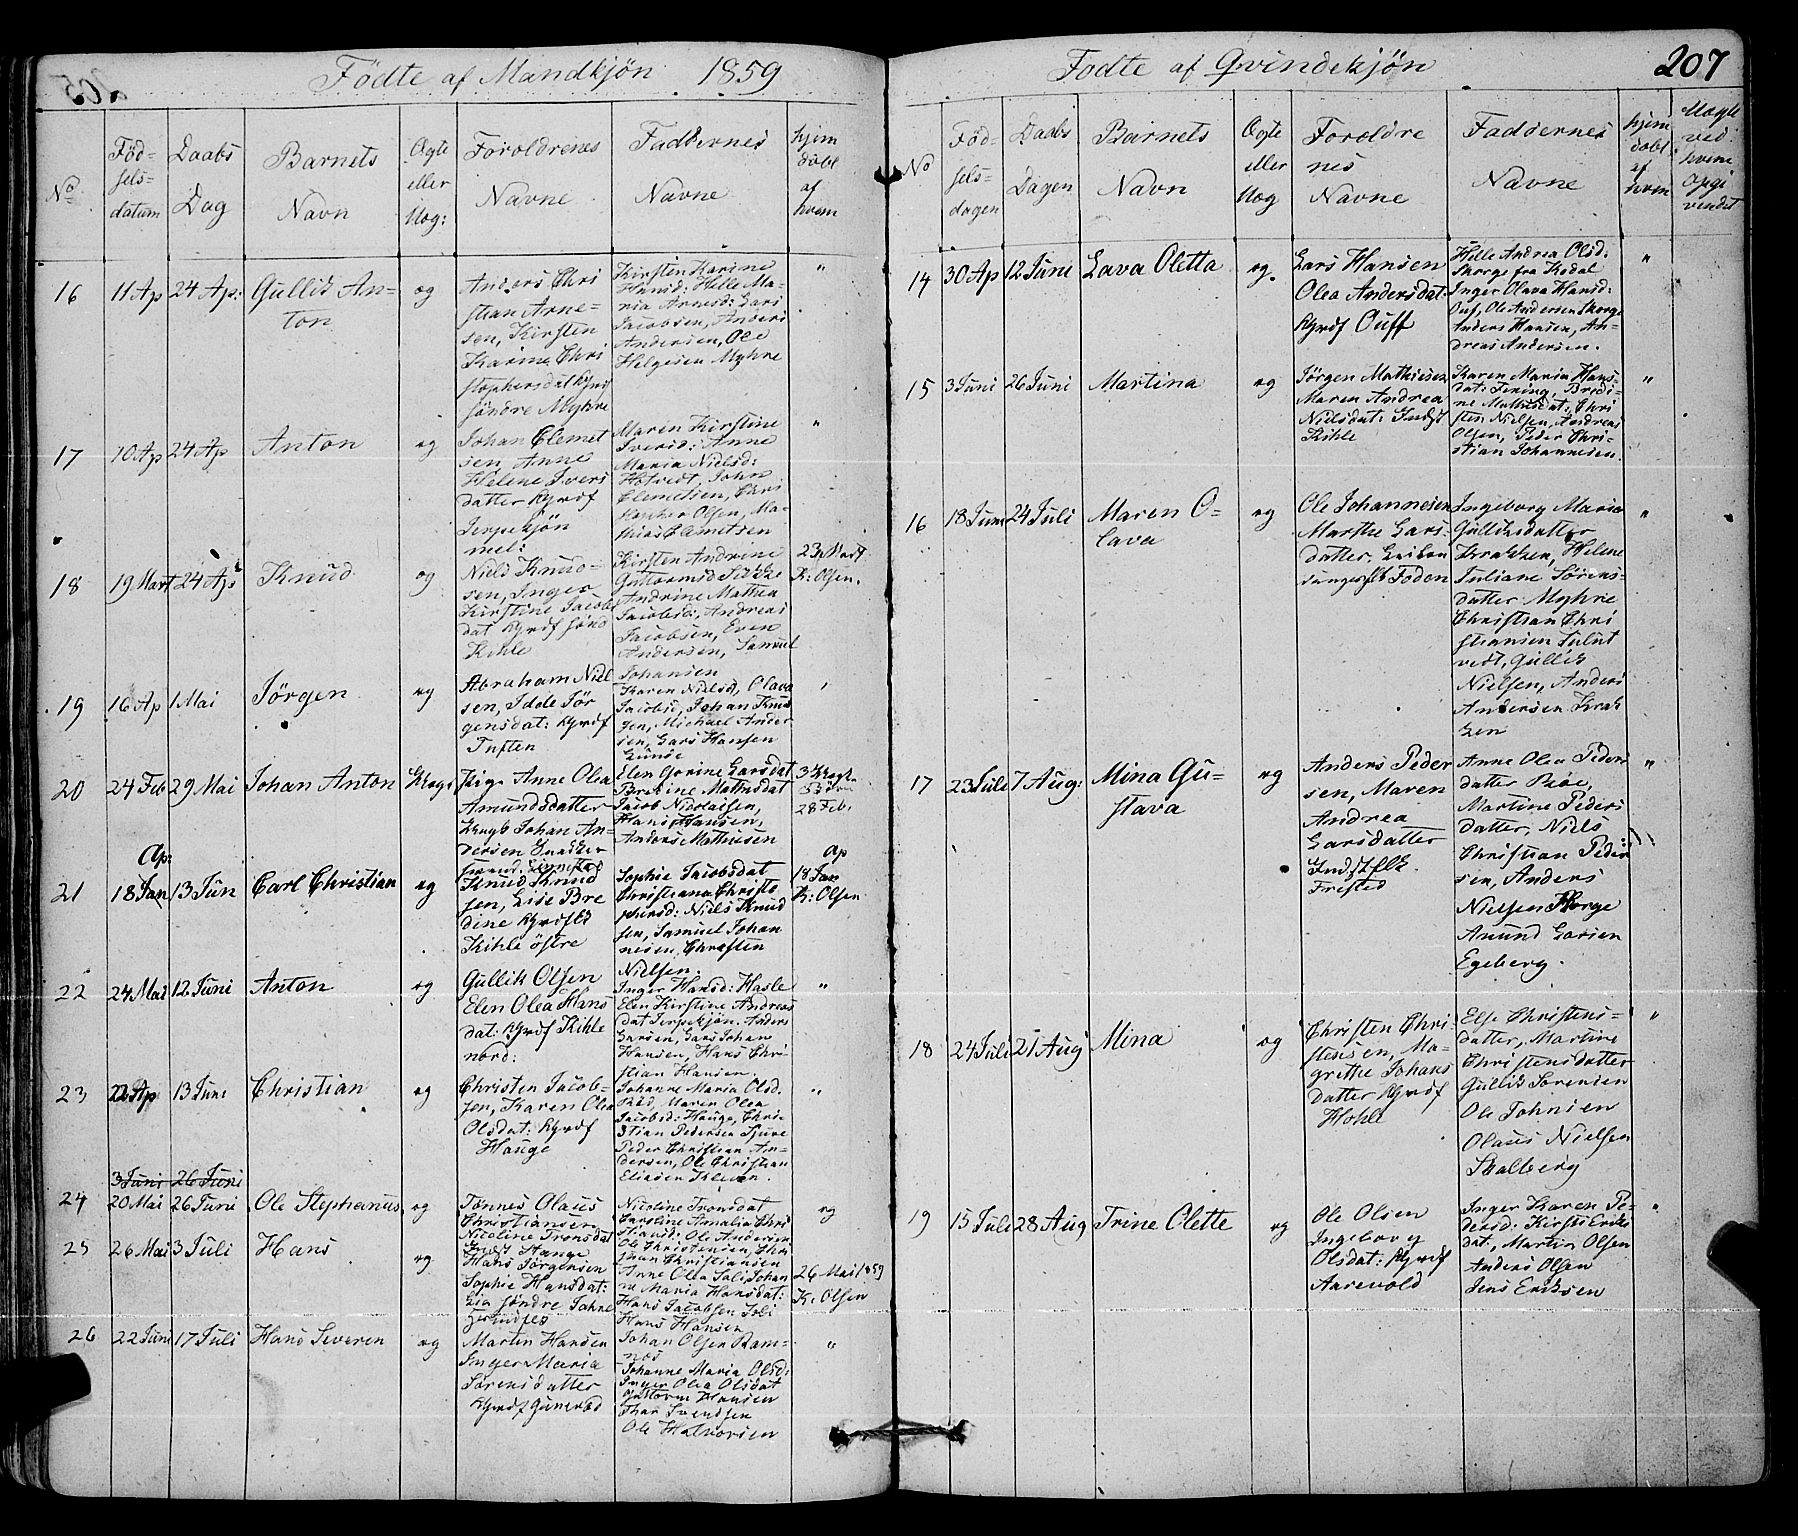 Födte af Mandkjön 1859
No
Föd-
sels-
datum
Daabs
Dag
Barnets
Navn
Ægte
eller
Uæg:
Forældrenes
Navne
Faddernes
Navne
hjem
döbt
af
hvem
16
11 Ap
24 Ap:
Gullik An-
ton
æg
Anders Chri
stian Arne-
sen, Kirsten
Karine Chri
stophersdat
söndre Myhre
Kirsten Karine
Hansd: Helle Ma-
ria Arnesd: Lars
Jacobsen, Anders
Andersen, Ole
Helgesen Myhre
"
17
10 Ap
24 Ap
Anton
æg
Johan Clemet
sen, Anne
Helene Ivers
datter
Jerpekjön
mel:
Maren Kirstine
Iversd: Anne
Maria Nielsd:
John
Clemetsen, Chri
stopher Olsen, Ma-
thias Clemetsen
"
18
19 Mart
24 Ap
Knud
æg
Niels Knud-
sen, Inger
Kirstine Jacobs
dat sönd
Kihle
Kirsten Andrine
Guttormsd
Andrine Mathea
Jacobsd:, Andreas
Jacobsen, Even
Andersen, Samuel
Johansen
23 Mart
K: Olsen.
19
16 Ap
1 Mai
Jörgen
æg
Abraham Niel
sen, Idde Jör
gensdat:
Tuften
Karen Nielsd, Olava
Jacobsd, Johan Knud
sen, Michael Ander
sen, Lars Hansen
"
20
24 Feb
29 Mai
Johan Anton
Uægt
Pige Anne Olea
Amundsdatter
Ungk Johan An-
dersen
Elen Gorine Larsdat
Berthine Mathisdat
Jacob Nicolaisen,
Hans Hansen,
Anders Mathisen
28 Feb.
21
Ap:
18 Jan
13 Jun
Carl Christian
æg
Knud Knud
sen, Lise Bre
dine
Kihle östre
Sophie Jacobsdat
Christiana Christo
phersd: Niels Knud
sen, Samuel Johan
nesen, Christen
Nielsen.
Ap
18 Jan
K: Olsen
22
24 Mai
12 Juni
Anton
æg
Gullik Olsen
Elen Olea Hans
dat: Kihle
nord:
Inger Hansd: Hasle
Elen Kirstine Andreas
dat Jerpekjön. Anders
Larsen, Lars Johan
Hansen, Hans Chri-
stian Hansen.
"
23
22 Ap
13 Juni
Christian
æg
Christen Jacob-
sen, Karen Olea
Olsdat:
Hauge
Johanne Maria Olsd.
Maren Olea
Jacobsd: Hauge, Chri-
stian Pedersen
Peder Christian An-
dersen, Ole Christian
Eliasen
"
3 Juni 26 Juni
24
20 Mai
26 Juni
Ole Stephanus
æg
Tönnes Olaus
Christiansen
Nicoline Tronsdat
Nicoline Tronsdat
Caroline Amalia Chri
stiansd: Ole Andersen
Ole Christensen, Chri
stian Christiansen
æg
25
26 Mai
3 Juli
Hans
æg
Hans Jörgensen
Sophie Hansdat:
söndre
Anne Olea Johan
ne Maria Hansdat:
Hans Jacobsen
Hans Hansen
26 Mai 1859
K. Olsen
26
22 Juni
17 Juli
Hans Severen
æg
Martin Hansen
Inger Maria
Sörensdatter
Johan Olsen Ram-
næs
Johanne Maria Olsd:
Inger Olea Olsdat
Guttorm Hansen
Thor Svendsen
Ole Halvorsen
"
Födte af Qvindekjön
207
No
Föd-
sels-
dagen
Daabs
Dagen
Barnets
Navn
Ægte
eller
Uæg
Foroldre
nes
Navne
Faddernes
Navne
hjem
döbt
af
hvem
14
30 Ap
12 Juni
Lava Oletta
æg.
Lars Hansen
Olea Andersdat.
Helle Andrea Olsd:
Skorge fra Kodal
Inger Olava Hansd:
Ole Andersen Skorge
Anders Hansen, An-
dreas Andersen.
"
15
3 Juni
26 Juni
Martina
æg
Jörgen Mathiesen
Maren Andrea
Nielsdat: Indst
Kihle
Karen Maria Hans-
dat: Bredi-
ne Mathisdat: Chri
sten Nielsen, Andreas
Olsen, Peder Chri-
stian Johannesen.
"
16
18 Juni
24 Juli
Maren O-
lava
æg
Ole Johannesen
Marthe Lars-
datter
Ingeborg Maria
Gulliksdatter
Krakken, Helene
Juliane Sörens-
datter Myhre
Christian Chri
stiansen
Gullik
Nielsen, Anders
Andersen Krak
ken
"
17
23 Juli
7 Aug:
Mina Gu-
stava
æg
Anders Peder
sen, Maren
Andrea
Larsdatter
Anne Olea Peders
datter
Martine Peders
datter, Niels
Christian Peder
sen, Anders
Nielsen
Amund Larsen
Egeberg.
"
18
24 Juli
21 Aug
Mina
æg
Christen Chri-
stensen, Ma-
grethe Johans
datter
Else Christens-
datter, Martine
Christensdatter
Gullik Sörensen
Ole Johnsen
Olaus Nielsen
Skalberg
"
19
15 Juli
28 Aug
Trine Olette
æg
Ole Olsen
Ingeborg
Olsdat:
Aarevold
Inger Karen Pe-
dersd: Kirsti Eriks
dat., Martin Olsen
Anders Olsen
Jens Eriksen
"